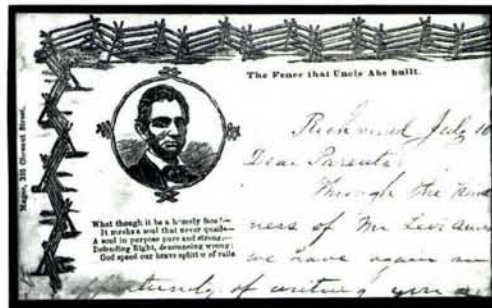 The Fence that Uncle Abe built.
Magee, 316 Chesnut Street.
What though it be a homely face?—
It masks a soul that never quails—
A soul in purpose pure and strong,—
Defending Right, denouncing wrong;
God speed our brave splitter of rails
Richmond July 10
Dear Parents,
Through the kind
ness of Mr Levi
we have again an
of writing you